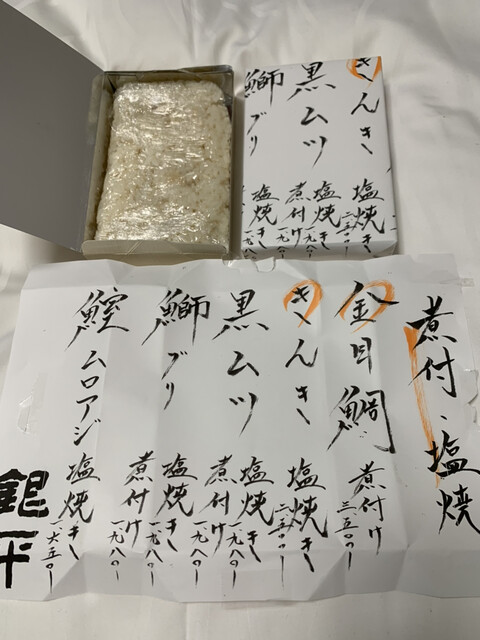 きんき
塩焼き
二五〇〇ー
黒ムツ
塩焼き
一九八〇ー
煮付け
一九八〇ー
鰤ブリ
塩焼き
一九八〇ー
煮付、塩焼
金目鯛
煮付け
三五〇〇ー
きんき
塩焼き
二五〇〇ー
黒ムツ
塩焼き
一九八〇ー
煮付け
一九八〇ー
鰤ブリ
塩焼き
一九八〇ー
煮付け
一九八〇ー
ムロアジ
塩焼き
一六五〇ー
銀平